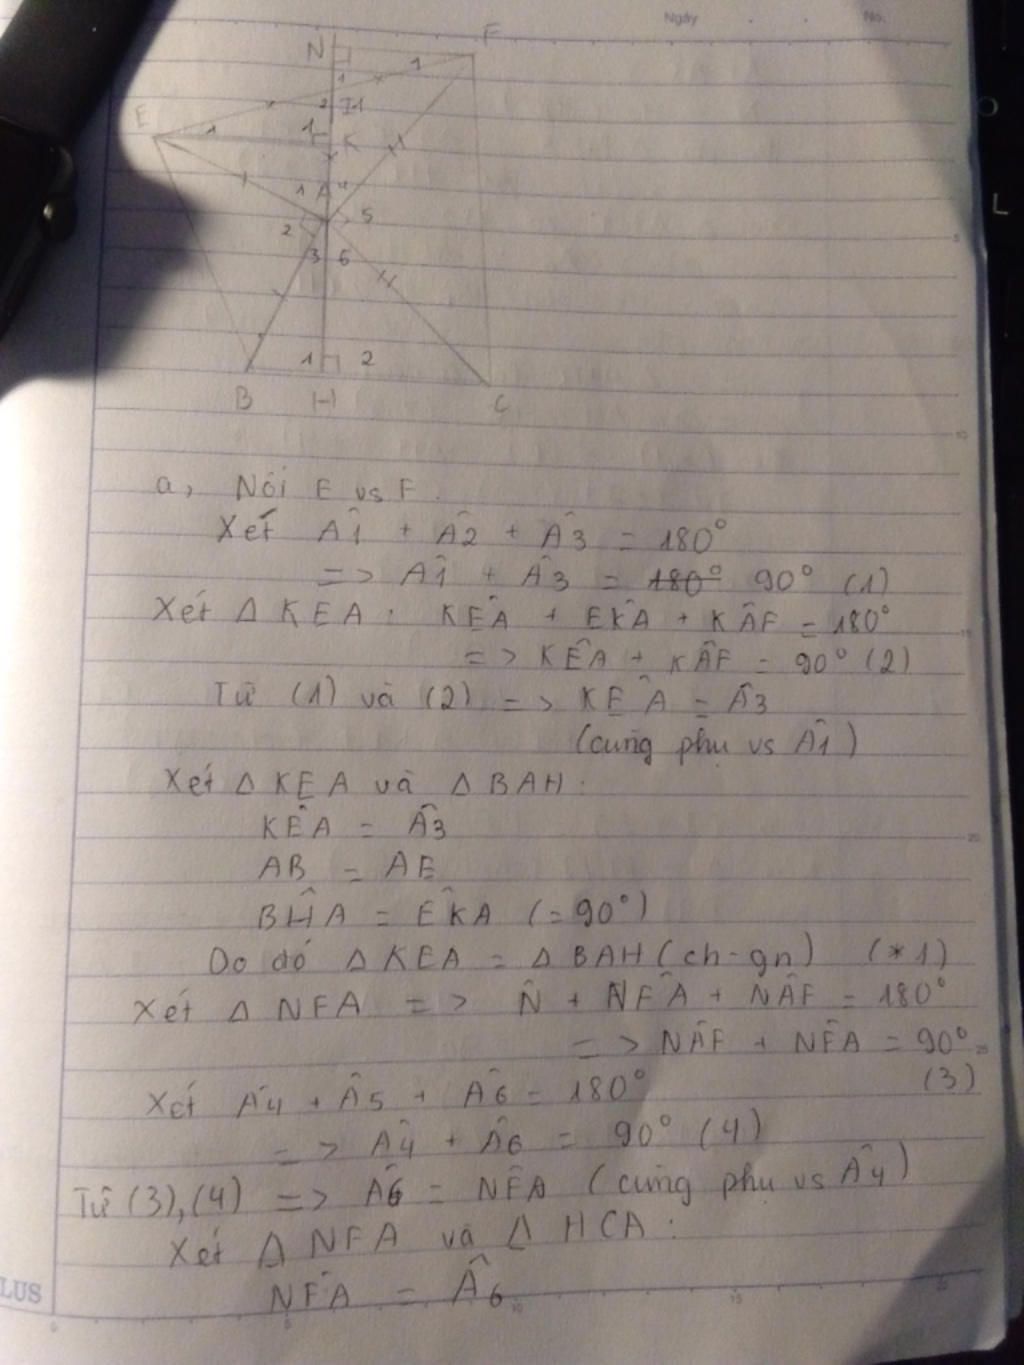 Ngày No.
N F
1 1
2 I1
E 1 1 K
1 A 4
2 5
3 6
1 2
B H C
a, Nối E vs F.
Xét Â1 + Â2 + Â3 = 180°
=> Â1 + Â3 = 180° 90° (1)
Xét Δ KEA : KÊA + EK̂A + KÂF = 180°
=> KÊA + KÂF = 90° (2)
Từ (1) và (2) => KÊA = Â3
(cùng phụ vs Â1)
Xét Δ KEA và Δ BAH :
KÊA = Â3
AB = AE
BĤA = EK̂A (= 90°)
Do đó Δ KEA = Δ BAH (ch-gn) (*1)
Xét Δ NFA => N̂ + NF̂A + NÂF = 180°
=> NÂF + NF̂A = 90°
(3)
Xét Â4 + Â5 + Â6 = 180°
=> Â4 + Â6 = 90° (4)
Từ (3), (4) => Â6 = NF̂A (cùng phụ vs Â4)
Xét Δ NFA và Δ HCA :
NF̂A = Â6
LUS
0 5 10 15 20